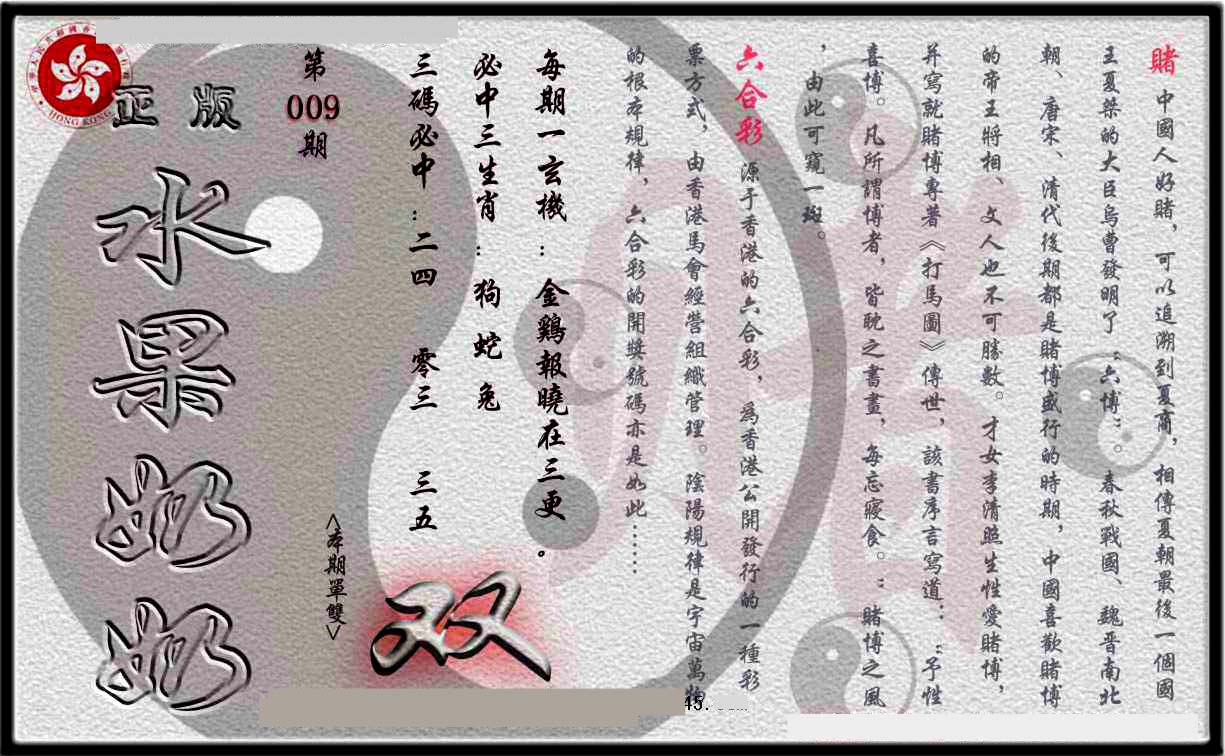 賭 中國人好賭，可以追溯到夏商，相傳夏朝最後一個國
王夏桀的大臣烏曹發明了“六博”。春秋戰國、魏晋南北
朝、唐宋、清代後期都是賭博盛行的時期，中國喜歡賭博
的帝王將相、文人也不可勝數。才女李清照生性愛賭博，
并寫就賭博專著《打馬圖》傳世，該書序言寫道：“予性
喜博。凡所謂博者，皆耽之書畫，每忘寢食。”賭博之風
，由此可窺一斑。
六合彩 源于香港的六合彩，爲香港公開發行的一種彩
票方式，由香港馬會經營組織管理。陰陽規律是宇宙萬物
的根本規律，六合彩的開獎號碼亦是如此……
每期一玄機：金鷄報曉在三更。
必中三生肖：狗 蛇 兔
三碼必中：二四 零三 三五
<本期單雙>
双
第
009
期
正版
水果奶奶
HONG KONG
45.